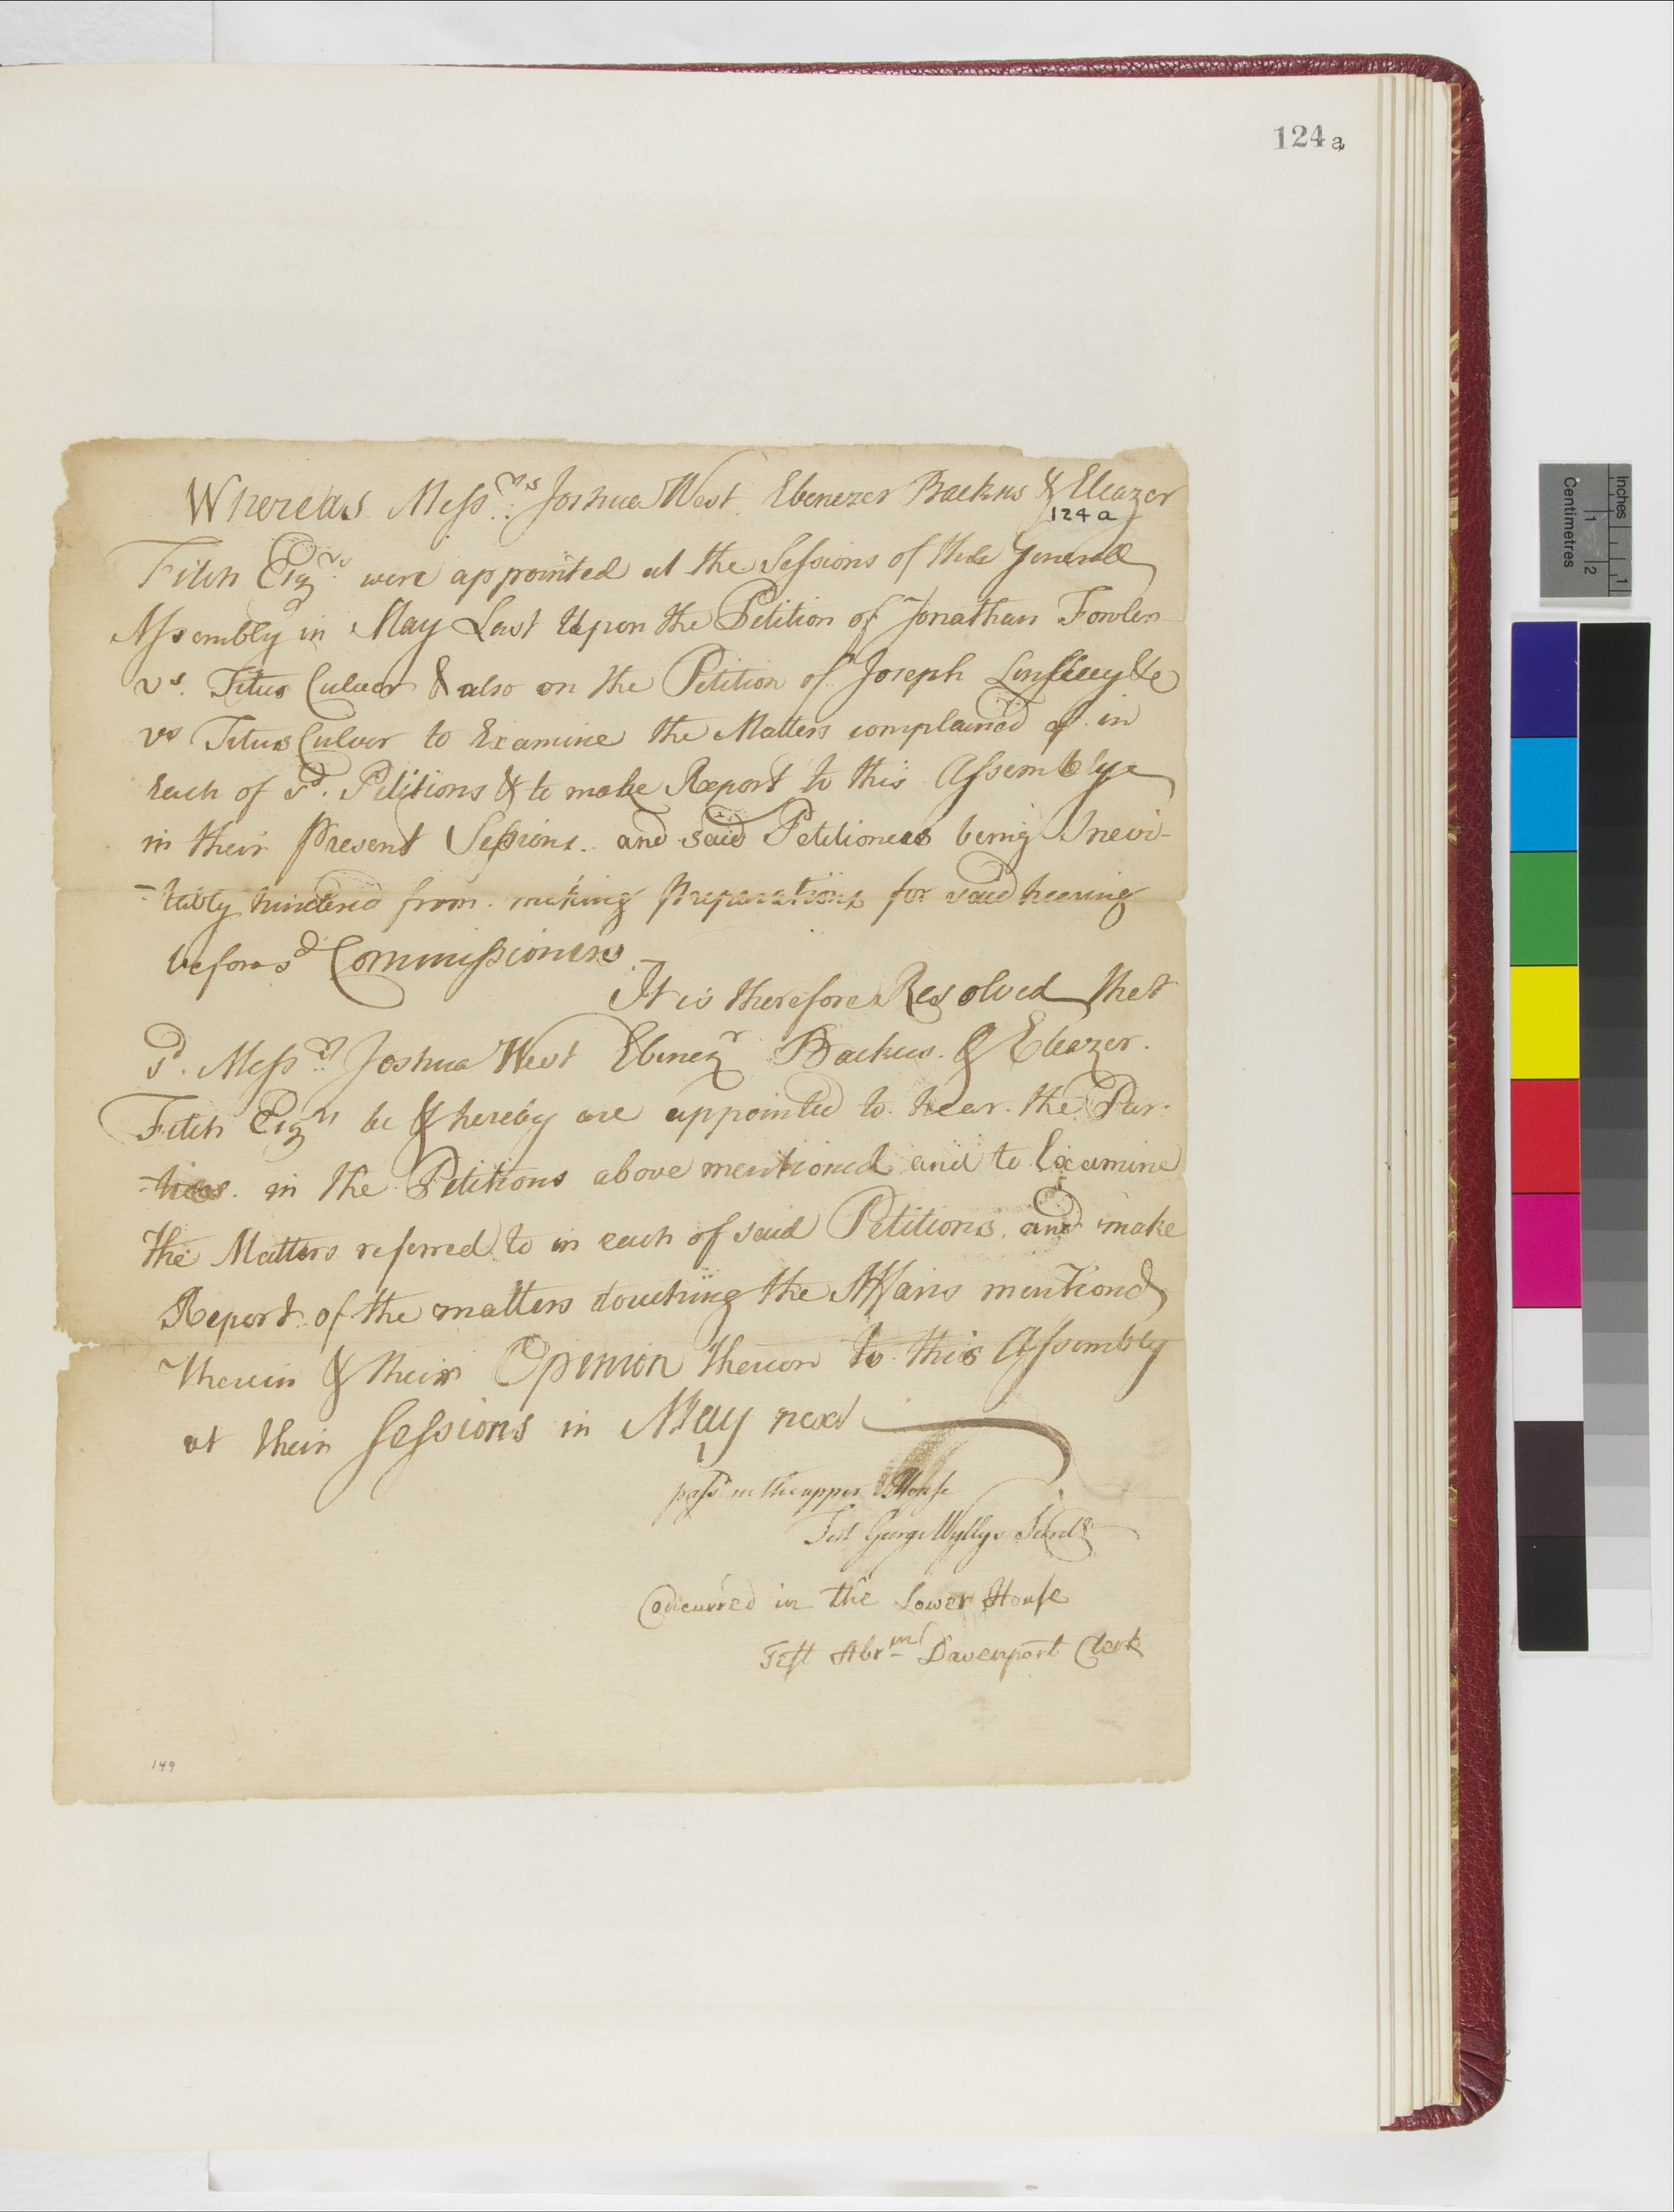 124a
Whereas Messrs. Joshua West. Ebenezer Backus & Eleazer
124 a
Fitch Esqrs. were appointed at the Sessions of this General
Assembly in May Last Upon the Petition of Jonathan Fowler
vs. Titus Culver & also on the Petition of Joseph
vs Titus Culver to Examine the Matters complained of in
Each of sd. Petitions & to make Report to this Assemblye
in their Present Sessions. and said Petitioners being Inevi-
-tably hindered from making Preparations for said heering
before sd Commissioners.
It is therefore Resolved that
sd. Messrs. Joshua West Ebenezr Backus. & Eleazer.
Fitch Esqrs be & hereby are appointed to hear. the Par-
-ties. in the Petitions above mentioned and to Examine
the Matters referred to in each of said Petitions. and make
Report of the matters touching the Affairs mentiond
therein & their Opinion thereon to this Assembly
at their Sessions in May next
passd in the upper House
Test George Wyllys Secret
Concurred in the Lower House
Test Abrm Davenport Clerk
149
Inches
1
2
Centimetres
1